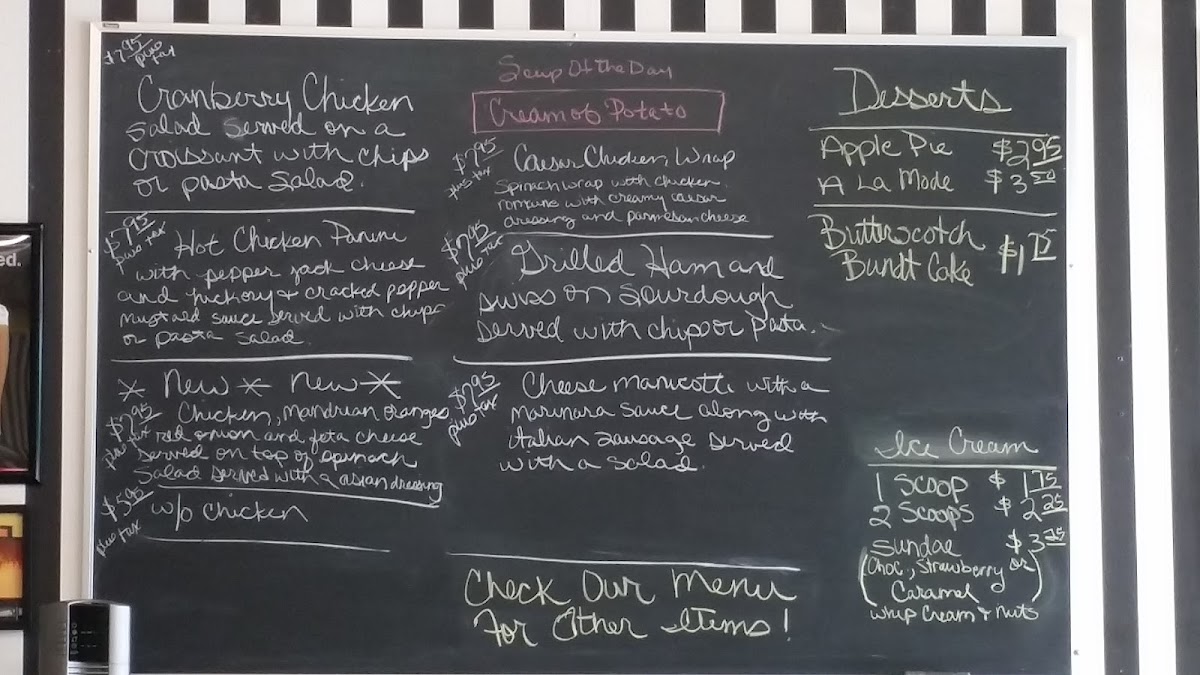 $7.95 plus tax
Cranberry Chicken
Salad Served on a
Croissant with chips
or pasta salad.
$7.95 plus tax
Hot Chicken Panini
with pepper jack cheese
and hickory & cracked pepper
mustard sauce served with chips
or pasta salad.
* New * New *
$7.95 plus tax
Chicken, Mandrian oranges
red onion and feta cheese
served on top of spinach
Salad served with a asian dressing
$5.95 plus tax
w/o chicken
Soup Of the Day
Cream of Potato
$7.95 plus tax
Caesar Chicken Wrap
Spinach wrap with chicken
romaine with creamy caesar
dressing and parmesan cheese
$7.95 plus tax
Grilled Ham and
swiss on Sourdough
served with chips or pasta.
$7.95 plus tax
Cheese manicotti with a
marinara sauce along with
italian sausage served
with a salad.
Check Our Menu
For Other Items!
Desserts
Apple Pie $2.95
A La Mode $3.50
Butterscotch
Bundt Cake $1.75
Ice Cream
1 Scoop $1.75
2 Scoops $2.25
Sundae $3.25
(Choc., Strawberry or
Caramel)
Whip Cream & Nuts
ed.